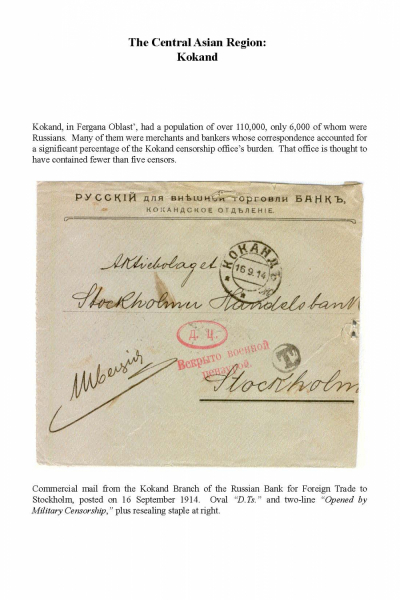 The Central Asian Region:
Kokand
Kokand, in Fergana Oblast', had a population of over 110,000, only 6,000 of whom were
Russians. Many of them were merchants and bankers whose correspondence accounted for
a significant percentage of the Kokand censorship office's burden. That office is thought to
have contained fewer than five censors.
РУССКІЙ для внѣшней торговли БАНКЪ,
КОКАНДСКОЕ ОТДѢЛЕНІЕ.
КОКАНДЪ
16.9.14
Aktiebolaget
Stockholms Handelsbank
Д. Ц.
Вскрыто военной
цензурой.
Stockholm
Швецiя
Commercial mail from the Kokand Branch of the Russian Bank for Foreign Trade to
Stockholm, posted on 16 September 1914. Oval "D.Ts." and two-line "Opened by
Military Censorship," plus resealing staple at right.